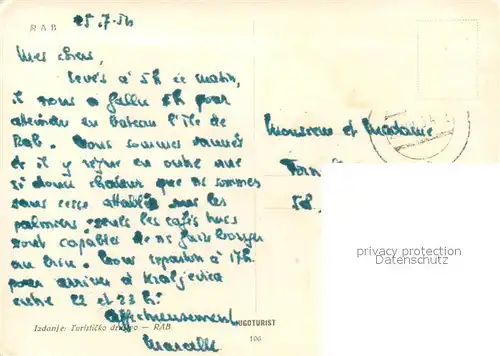 RAB
25.7.54
Mes chers,
Levés à 5h ce matin,
il nous a fallu 5h pour
atteindre en bateau l'île de
Rab. Nous sommes
et il y règne en outre une
si douce chaleur que ns sommes
sans cesse attablés sous les
palmiers - seuls les cafés turcs
sont capables de ns faire bouger
au lieu. Nous repartons à 17h.
pour arriver à Kraljevica
entre 22 et 23 h.
Affectueusement
Marcelle
Monsieur et Madame
privacy protection
www.ansichtskartenversand.com
Izdanje: Turističko društvo — RAB
JUGOTURIST
106